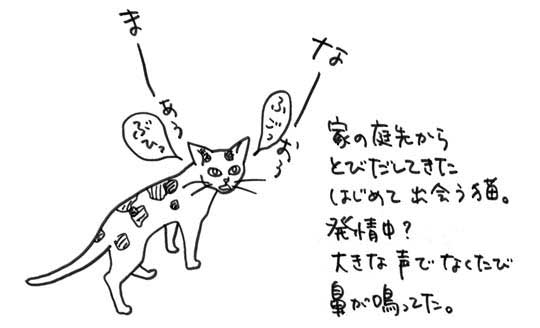 まーあぅ
ぶひっ
なーおぅ
ふごっ
家の庭先から
とびだしてきた
はじめて出会う猫。
発情中?
大きな声でなくたび
鼻が鳴ってた。